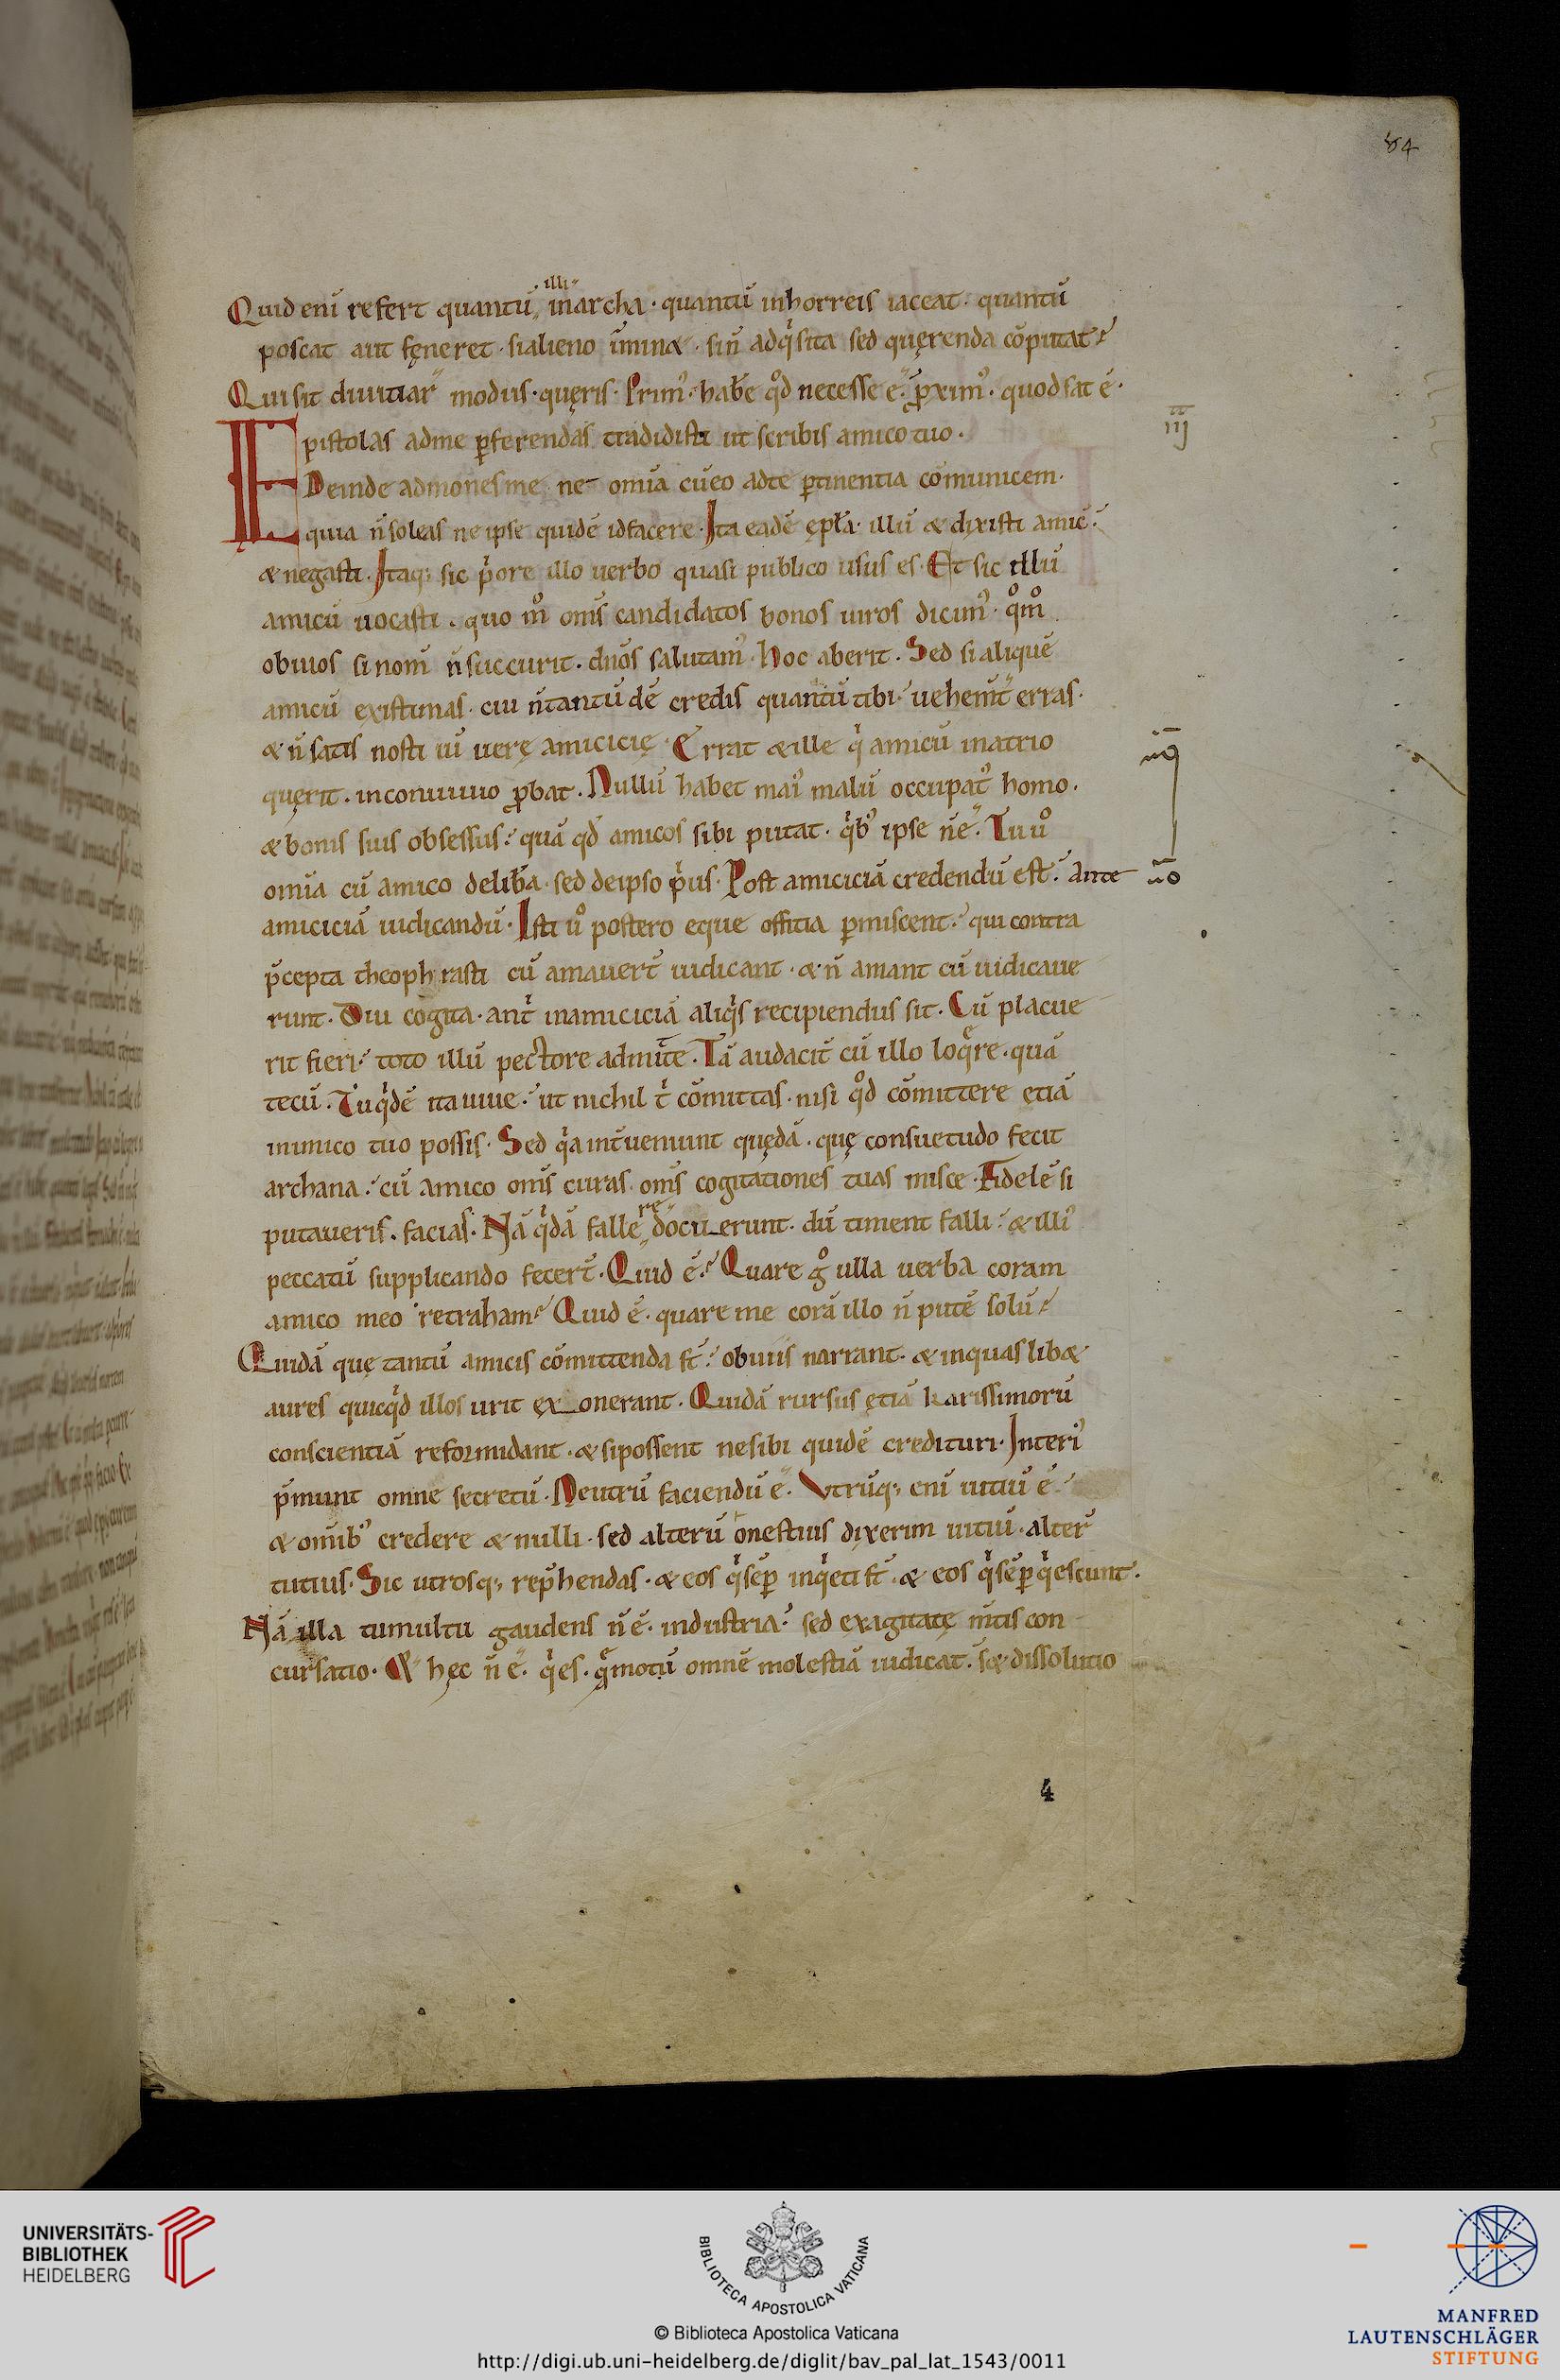 84
illi
Quid eni̅ refert quantu̅ in archa · quantu̅ in horreis iaceat · quantu̅
poscat aut fęneret · si alieno i̅minæ · si n̅ adqͥsita sed quęrenda co̅putat?
Qui sit diuitiar̅ modus · quęris · Primꝰ · hab̅e qͦd necesse e̅ · ꝓximꝰ · quod sat e̅ ·
Epistolas ad me ꝑferendas tradidisti ut scribis amico tuo ·
iij
Deinde admones me ne om̅ia cu̅ eo ad te ꝑtinentia co̅municem ·
quia n̅ soleas ne ipse quide̅ id facere · Ita eade̅ ępl̅a · illu̅ & dixisti amic̅ ·
& negasti · Itaq; sic pͥore illo uerbo quasi publico usus es · Et sic illu̅
amicu̅ uocasti · quo mͦ om̅s candidatos bonos uiros dicimꝰ · qͦmͦ
obuios si nom̅ n̅ succurit · dn̅os salutamꝰ · hoc aberit · Sed si alique̅
amicu̅ existimas · cui n̅ tantu̅de̅ credis quantu̅ tibi · uehem̅t erras ·
& n̅ satis nosti ui̅ uerę amicicię · Errat & ille qͥ amicu̅ in atrio
quęrit · in conuiuio ꝓbat · Nullu̅ habet maiꝰ malu̅ occupatꝰ homo ·
& bonis suis obsessus · qua̅ qd̅ amicos sibi putat · qͥbꝰ ipse n̅ e̅ · Tu uͦ
om̅ia cu̅ amico delib̅a · sed de ipso pͥus · Post amicicia̅ credendu̅ est · Ante
amicicia̅ iudicandu̅ · Isti uͦ postero eque offitia ꝑmiscent · qui contra
p̅cepta theophrasti cu̅ amauer̅t iudicant · & n̅ amant cu̅ iudicaue
runt · Diu cogita · an tͥ in amicicia̅ aliqͥs recipiendus sit · Cu̅ placue
rit fieri · toto illu̅ pectore admitte · Ta̅ audacit̅ cu̅ illo loqͤre · qua̅
tecu̅ · Tu qͥde̅ ita uiue · ut nichil tͥ co̅mittas · nisi qͦd co̅mittere ętia̅
inimico tuo possis · Sed qͥa int̅ueniunt quęda̅ · quę consuetudo fecit
archana · cu̅ amico om̅s curas · om̅s cogitationes tuas misce · Fidele̅ si
re
putaueris · facias · Na̅ qͥda̅ falle docuerunt · du̅ timent falli · & illiꝰ
peccatu̅ supplicando fecer̅t · Quid e̅ · Quare gͦ ulla uerba coram
amico meo retraham? Quid e̅ · quare me cora̅ illo n̅ pute̅ solu̅?
Quida̅ quę tantu̅ amicis co̅mittenda st̅ · obuiis narrant · & in quas libæ
aures quicqͥd illos urit exonerant · Quida̅ rursus ętia̅ karissimoru̅
conscientia̅ reformidant · & si possent ne sibi quide̅ credituri · Interiꝰ
p̅munt omne secretu̅ · Neutru̅ faciendu̅ e̅ · Vtru̅q; eni̅ uitiu̅ e̅
& om̅ibꝰ credere & nulli · sed alteru̅ onestius dixerim uitiu̅ · alter̅
tutius · Sic utrosq; rep̅hendas · & eos qͥ se̅ꝑ inqͥeti st̅ · & eos qͥ se̅ꝑ qͥescunt ·
Na̅ illa tumultu gaudens n̅ e̅ · industria · sed exagitatę m̅tis con
cursatio · & hęc n̅ e̅ · qͥes · qͤ motu̅ omne̅ molestia̅ iudicat · s& dissolutio
4
UNIVERSITÄTS-
BIBLIOTHEK
HEIDELBERG
BIBLIOTECA APOSTOLICA VATICANA
© Biblioteca Apostolica Vaticana
http://digi.ub.uni-heidelberg.de/diglit/bav_pal_lat_1543/0011
MANFRED
LAUTENSCHLÄGER
STIFTUNG